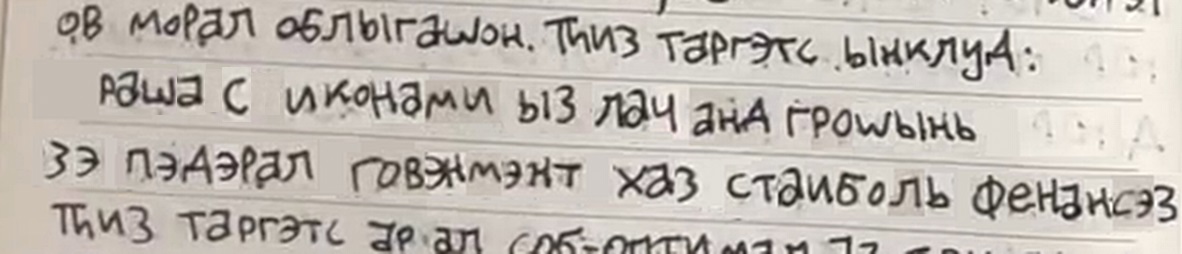 ов морал облыгашон. Тhиз таргэтс ынклуд:
раша с икономи ыз лач анд гроwынь
зэ пэдэрал говэнмэнт хаз стаиболь фенансэз
Тhиз таргэтс ар ал